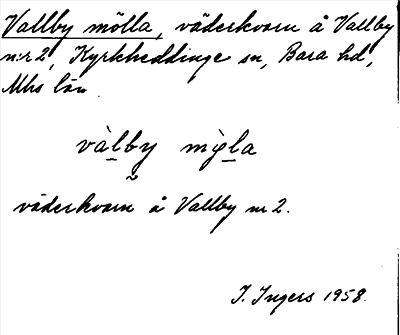 Vallby mölla, väderkvarn å Vallby
n:r 2, Kyrkheddinge sn, Bara hd,
Mhs län
vàlby
väderkvarn å Vallby nr 2.
I. Ingers 1958.